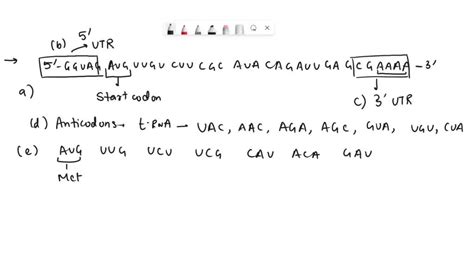 (b) 5' UTR
→ 5'- GGUAG AUG UUGU CUU CGC AUA CAGAUU GAG CGAAAA -3'
a) Start codon c) 3' UTR
(d) Anticodons → t-RNA — UAC, AAC, AGA, AGC, GUA, UGU, CUA
(e) AUG UUG UCU UCG CAU ACA GAU
Met